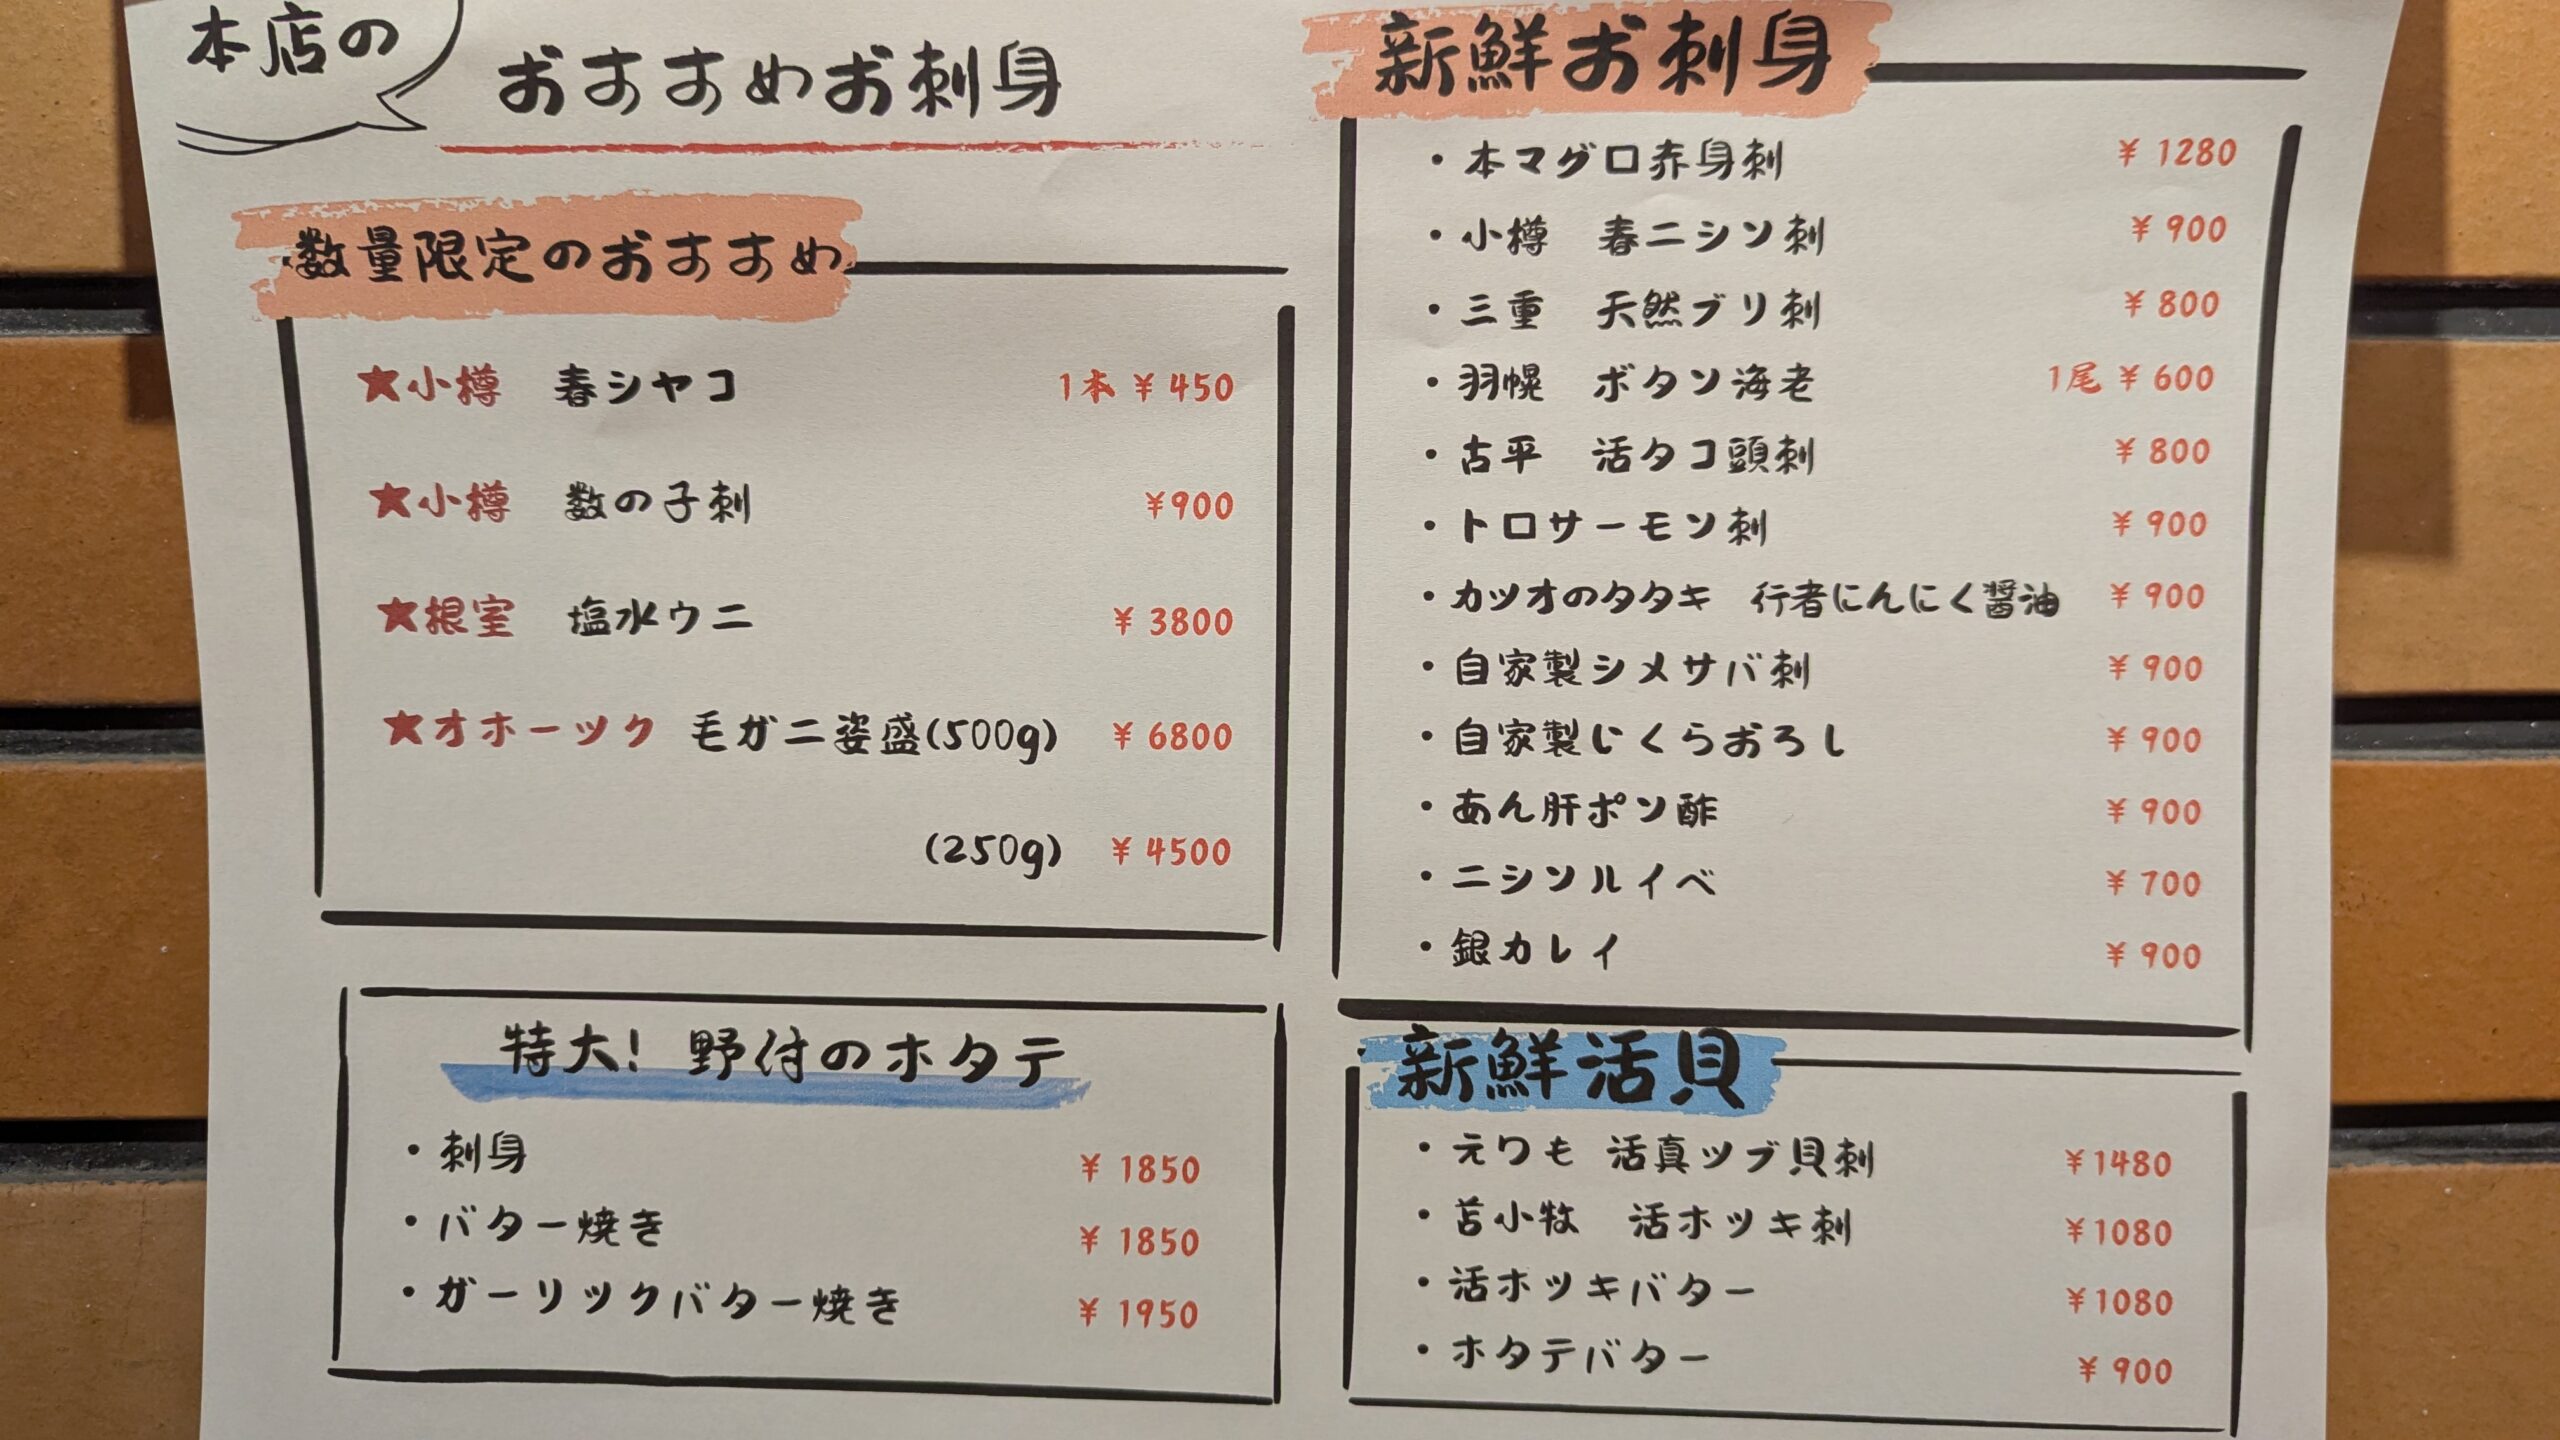 本店の
おすすめお刺身
数量限定のおすすめ
★小樽　春シャコ　1本 ¥ 450
★小樽　数の子刺　¥900
★根室　塩水ウニ　¥ 3800
★オホーツク 毛ガニ姿盛(500g)　¥ 6800
(250g)　¥ 4500
特大! 野付のホタテ
・刺身　¥ 1850
・バター焼き　¥ 1850
・ガーリックバター焼き　¥ 1950
新鮮お刺身
・本マグロ赤身刺　¥ 1280
・小樽　春ニシン刺　¥ 900
・三重　天然ブリ刺　¥ 800
・羽幌　ボタン海老　1尾 ¥ 600
・古平　活タコ頭刺　¥ 800
・トロサーモン刺　¥ 900
・カツオのタタキ　行者にんにく醤油　¥ 900
・自家製シメサバ刺　¥ 900
・自家製いくらおろし　¥ 900
・あん肝ポン酢　¥ 900
・ニシンルイベ　¥ 700
・銀カレイ　¥ 900
新鮮活貝
・えりも 活真ツブ貝刺　¥1480
・苫小牧　活ホッキ刺　¥1080
・活ホッキバター　¥1080
・ホタテバター　¥ 900